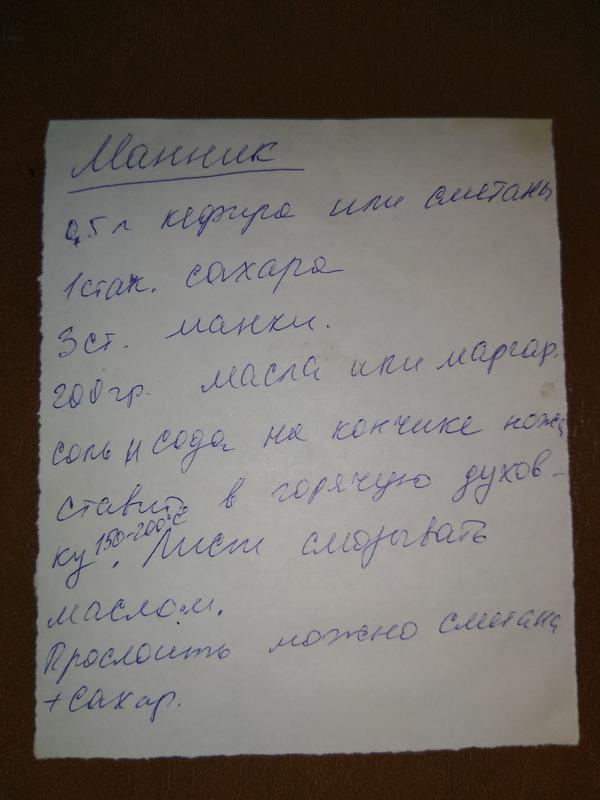 Манник
0,5 л кефира или сметаны
1 стак. сахара
3 ст. манки.
200 гр. масла или маргар.
соль и сода на кончике ножа
ставить в горячую духов-
ку 150-200°С. Лист смазывать
маслом.
Прослоить можно сметана
+ сахар.